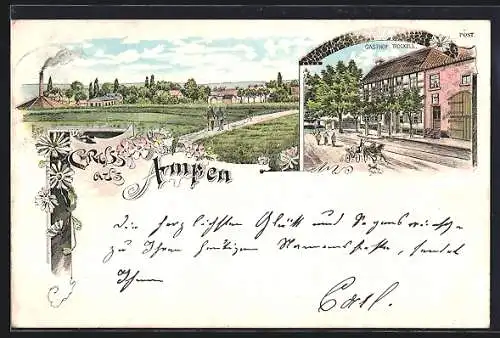 GASTHOF TROCKELS.
POST.
Gruss
aus
Ampen
Die herzlichsten Glück und Segenswünsche
zu Ihrem heutigen Namensfeste, sendet
Ihnen
Carl.